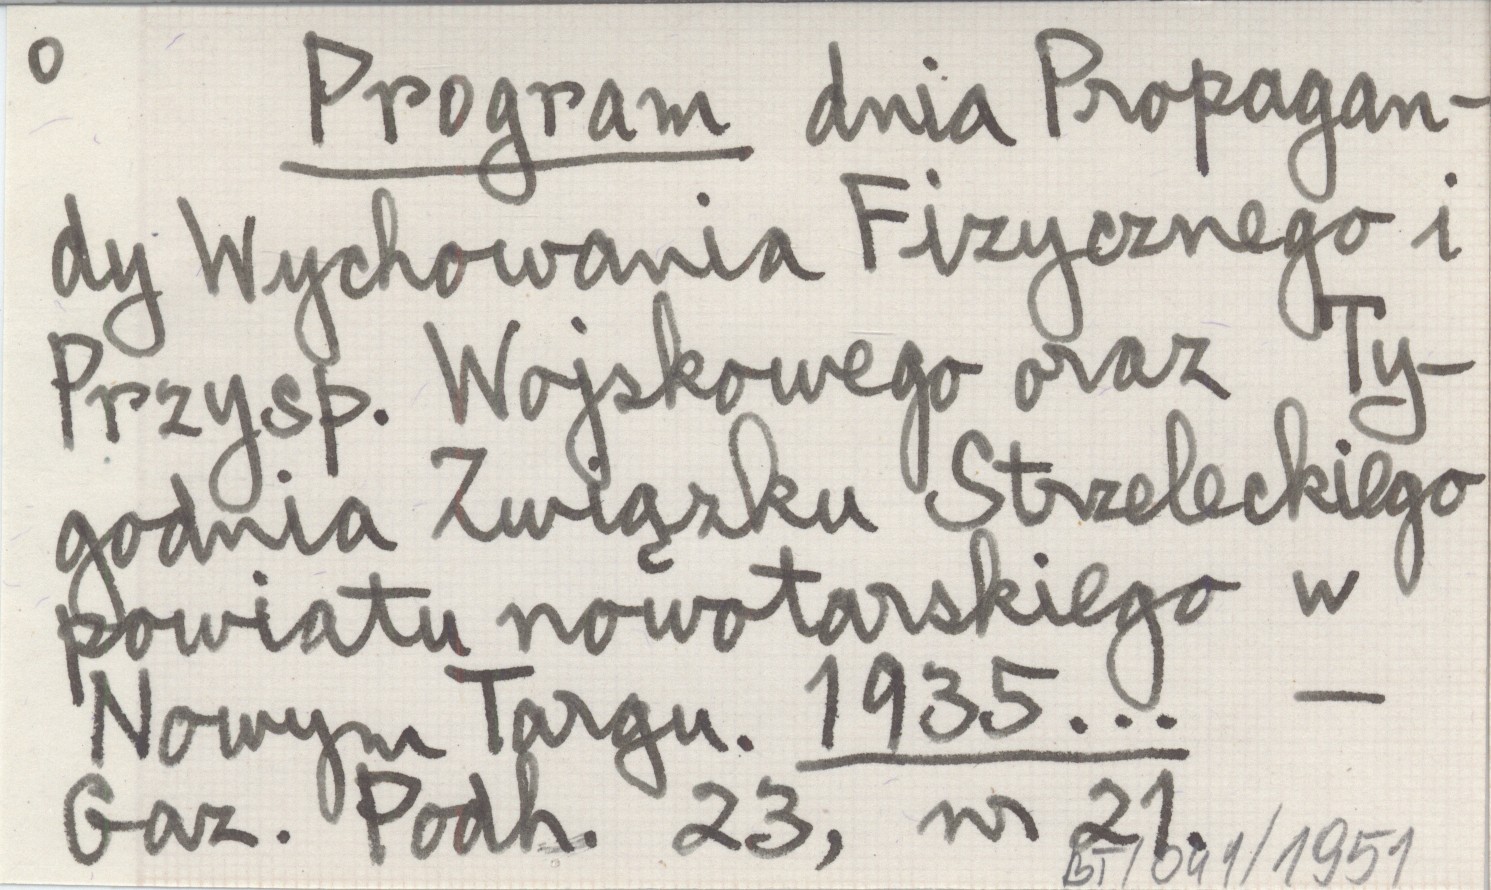 o Program dnia Propagan-
dy Wychowania Fizycznego i
Przysp. Wojskowego oraz Ty-
godnia Związku Strzeleckiego
powiatu nowotarskiego w
Nowym Targu. 1935... —
Gaz. Podh. 23, nr 21.
BT/041/1951